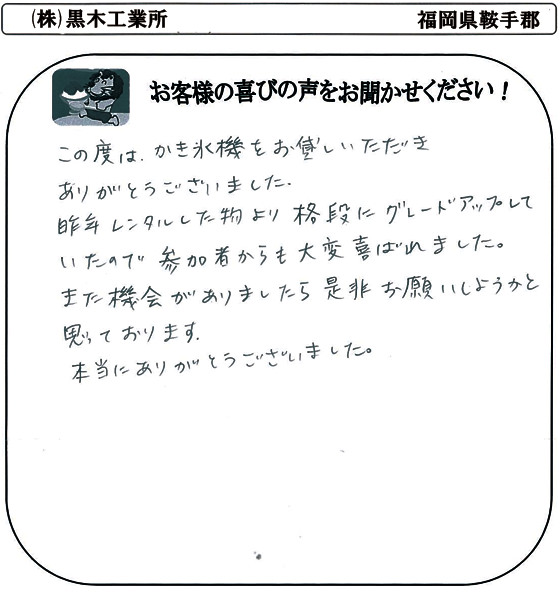 (株)黒木工業所 福岡県鞍手郡
お客様の喜びの声をお聞かせください！
この度は、かき氷機をお貸しいただき
ありがとうございました。
昨年レンタルした物より格段にグレードアップして
いたので参加者からも大変喜ばれました。
また機会がありましたら是非お願いしようかと
思っております。
本当にありがとうございました。